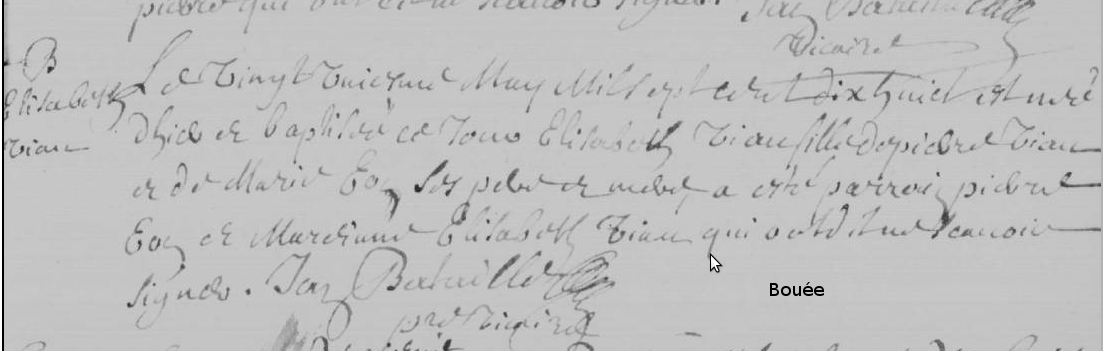 pierre qui ont dit ne scauoir signer. Jan Bataille
vicaire
B
Elisabeth
vian
Le vingt huiesme May Mil sept cent dix huict est née
dhier et baptisée ce Jour Elisabeth vian fille de pierre vian
et de Marie Eon ses pere et mere, a esté parrain pierre
Eon et Mareinne Elisabeth vian qui ont dit ne scauoir
signer. Jan Bataille
pre vicaire
Bouée